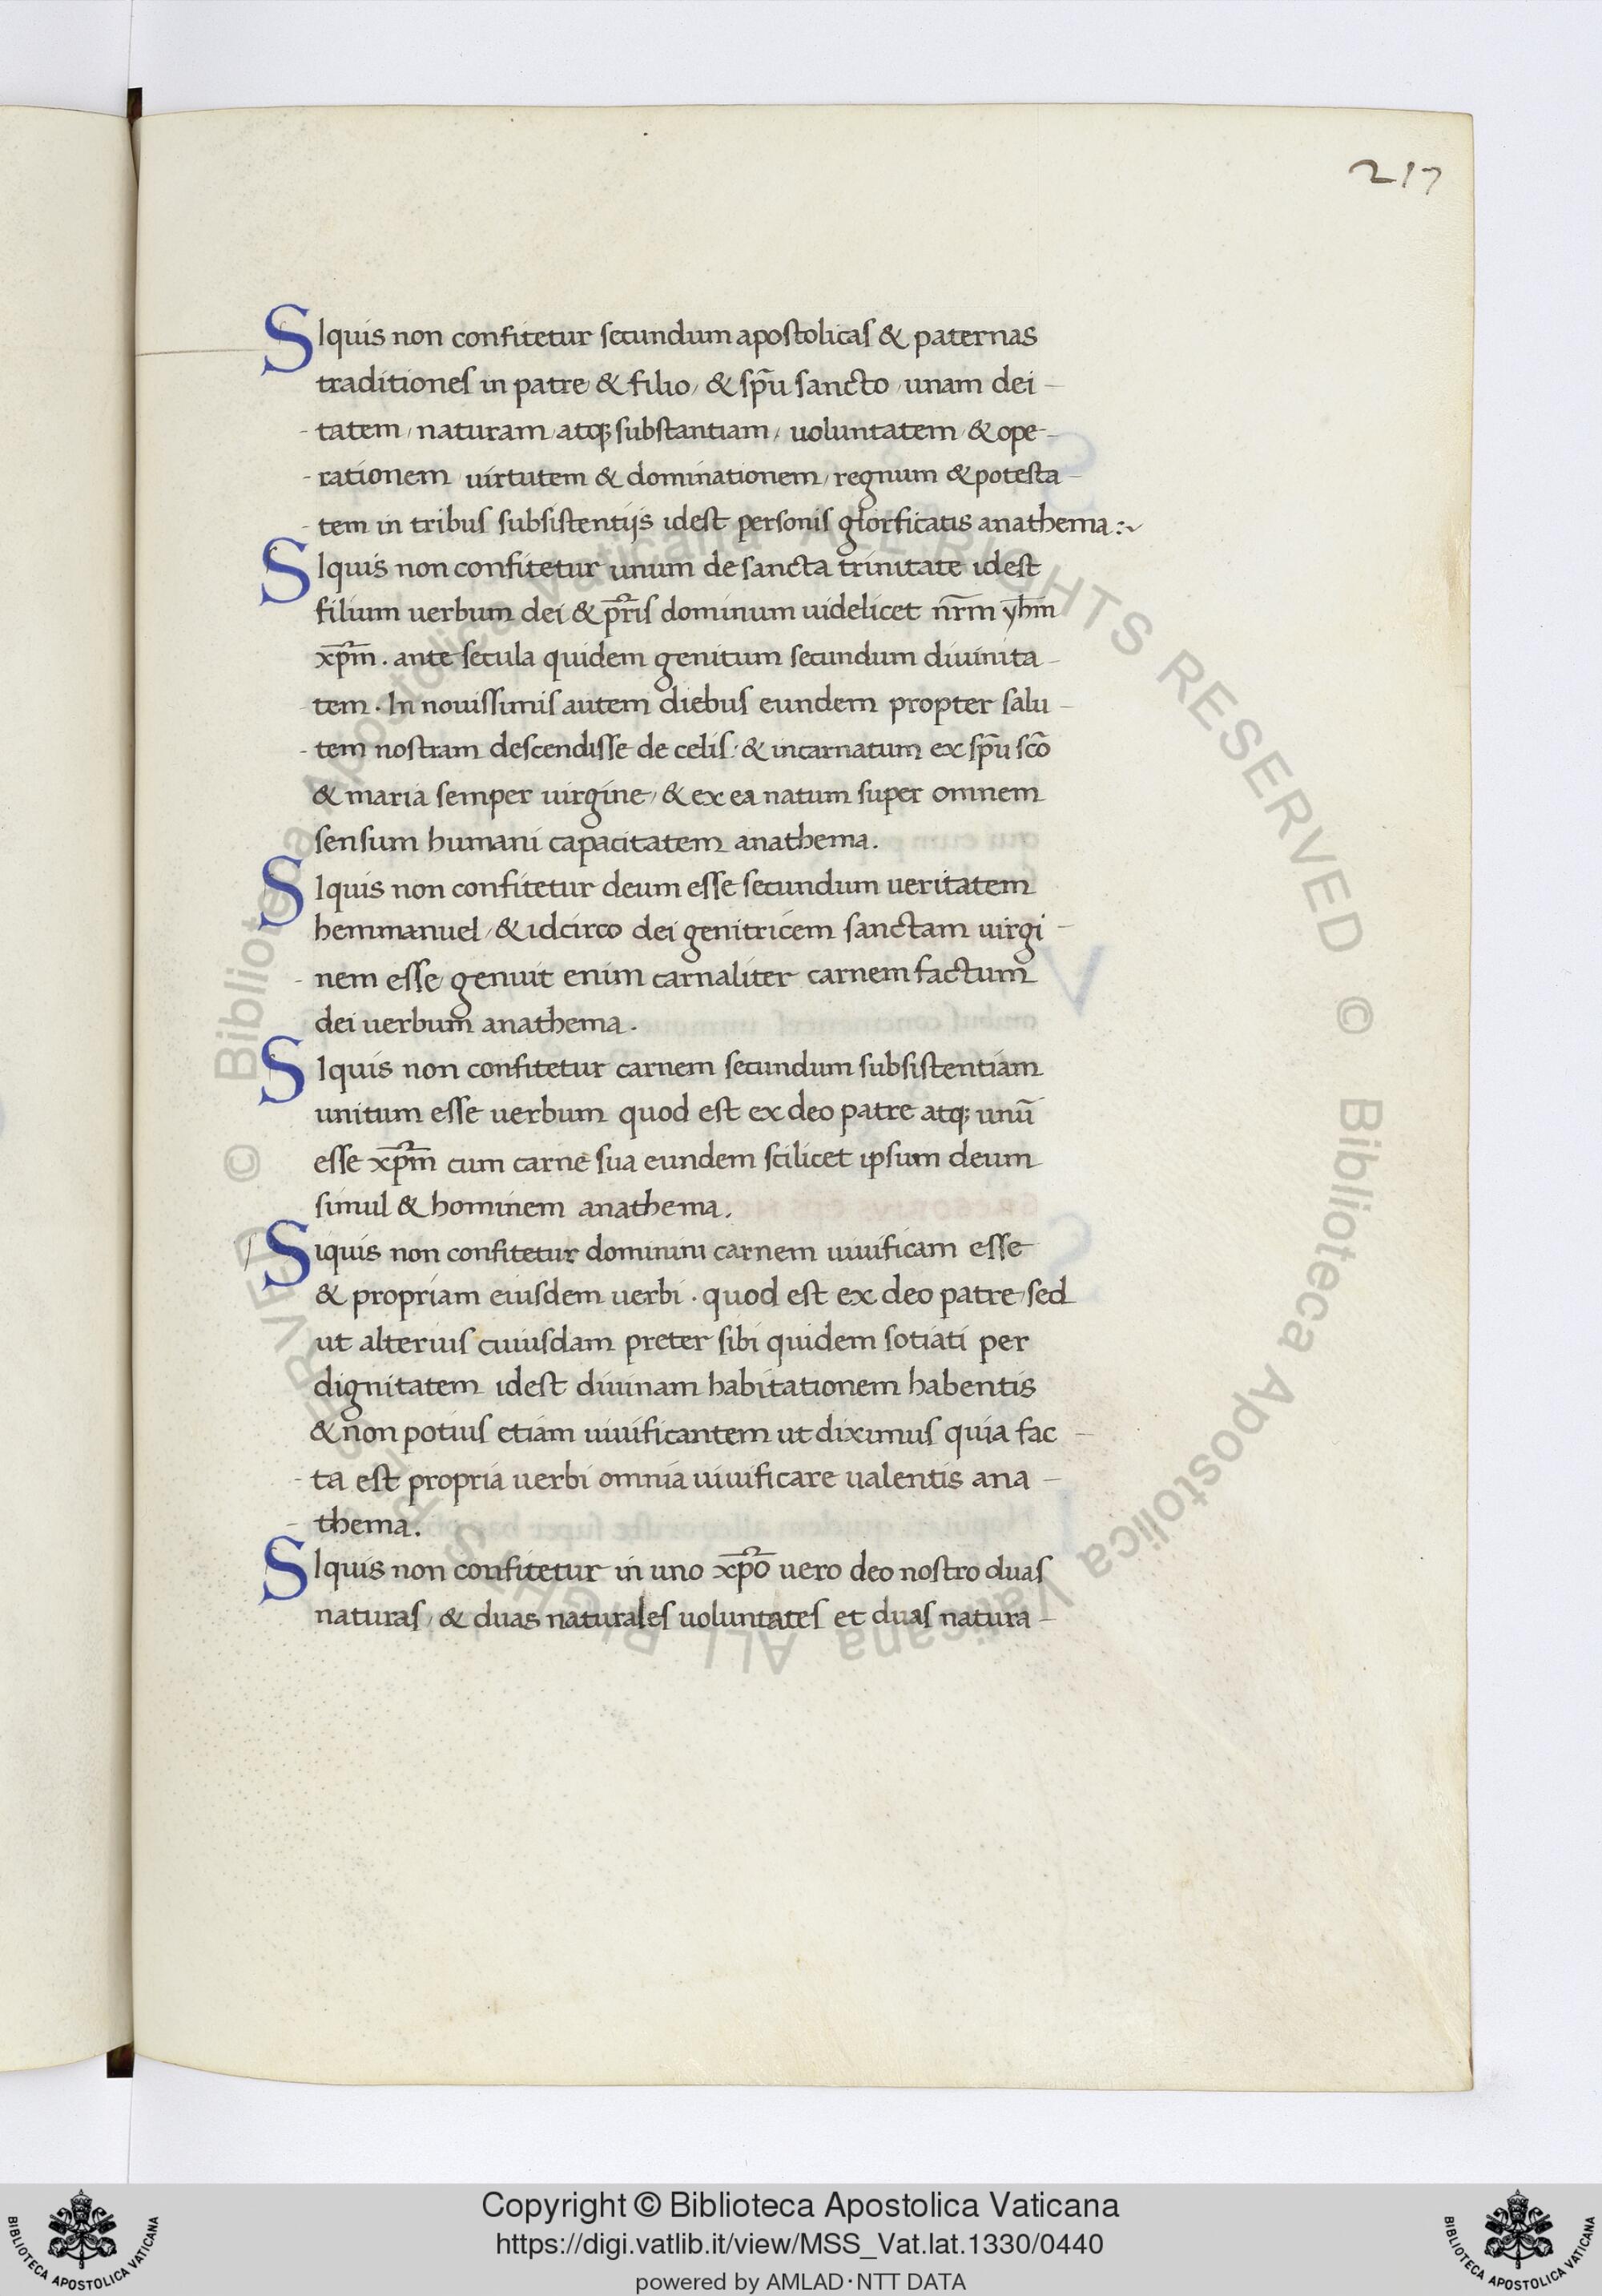 217
SIquis non confitetur secundum apostolicas & paternas
traditiones in patre & filio, & sp̄u sancto, unam dei-
-tatem, naturam, atq; substantiam, uoluntatem, & ope-
-rationem, uirtutem & dominationem, regnum & potesta-
-tem in tribus subsistentijs idest personis glorficatis anathema:~
SIquis non confitetur unum de sancta trinitate idest
filium uerbum dei & p̄ris dominum uidelicet nr̄m yh̄m
xp̄m. ante secula quidem genitum secundum diuinita-
-tem. In nouissimis autem diebus eundem propter salu-
-tem nostram descendisse de celis. & incarnatum ex sp̄u sc̄o
& maria semper uirgine, & ex ea natum super omnem
sensum humani capacitatem anathema.
SIquis non confitetur deum esse secundum ueritatem
hemmanuel, & idcirco dei genitricem sanctam uirgi-
-nem esse, genuit enim carnaliter carnem factum
dei uerbum anathema.
SIquis non confitetur carnem secundum subsistentiam
unitum esse uerbum quod est ex deo patre atq; unū
esse xp̄m cum carne sua eundem scilicet ipsum deum
simul & hominem anathema.
Siquis non confitetur domini carnem uiuificam esse
& propriam eiusdem uerbi. quod est ex deo patre, sed
ut alterius cuiusdam preter sibi quidem sotiati per
dignitatem idest diuinam habitationem habentis
& non potius etiam uiuificantem ut diximus quia fac-
-ta est propria uerbi omnia uiuificare ualentis ana-
-thema.
SIquis non confitetur in uno xp̄o uero deo nostro duas
naturas, & duas naturales uoluntates et duas natura-
© Biblioteca Apostolica Vaticana ALL RIGHTS RESERVED © Biblioteca Apostolica Vaticana ALL RIGHTS RESERVED
BIBLIOTECA APOSTOLICA VATICANA
Copyright © Biblioteca Apostolica Vaticana
https://digi.vatlib.it/view/MSS_Vat.lat.1330/0440
powered by AMLAD·NTT DATA
BIBLIOTECA APOSTOLICA VATICANA